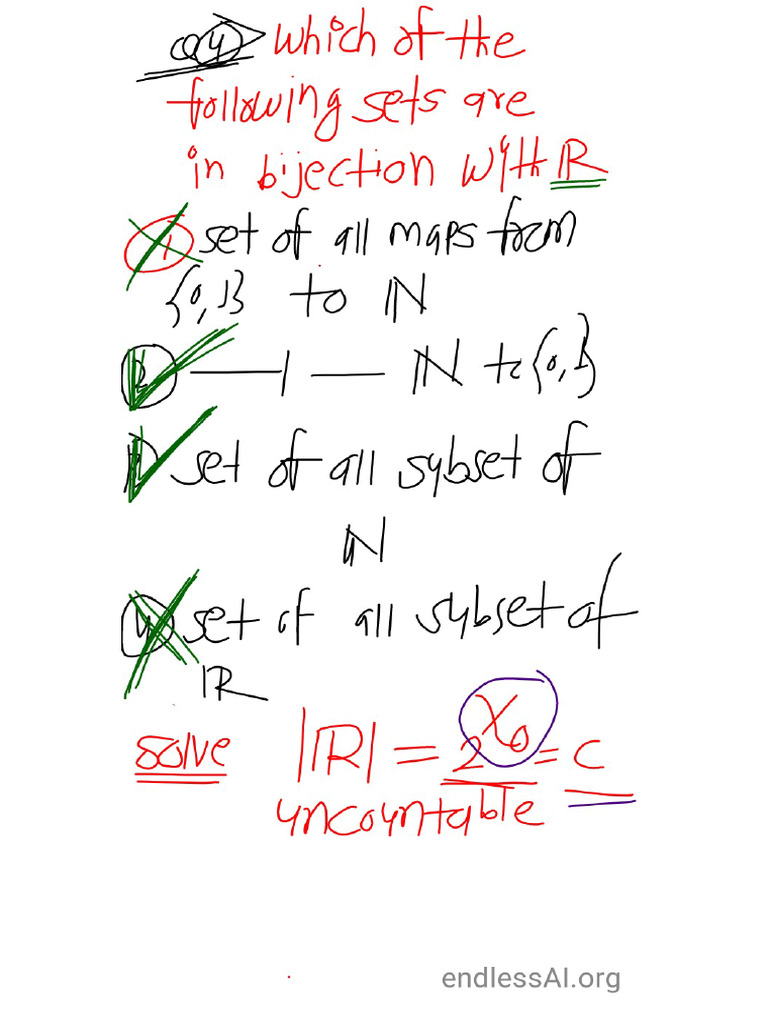 Q4> Which of the
following sets are
in bijection with ℝ
1 set of all maps from
{0,1} to ℕ
2 —||— ℕ to {0,1}
set of all sybset of
ℕ
4 set of all sybset of
ℝ
solve |ℝ| = 2^χ0 = c
uncountable
endlessAI.org